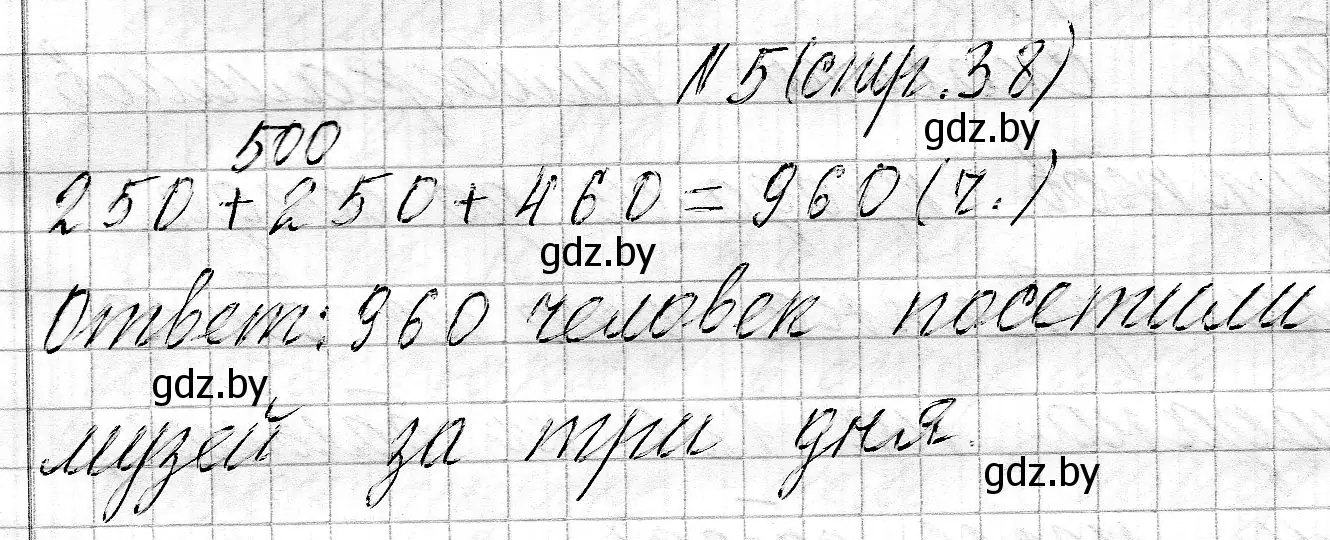 № 5 (стр. 38)
gdz.by
500
250 + 250 + 460 = 960 (ч.)
gdz.by
Ответ: 960 человек посетили
gdz.by
музей за три дня.
gdz.by